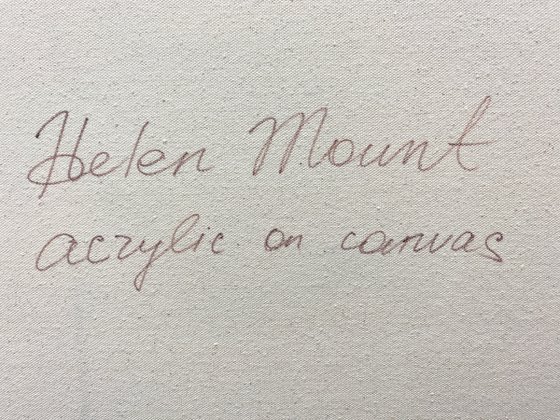 Helen Mount
acrylic on canvas